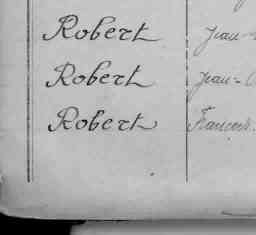 Robert Jean-
Robert Jean-
Robert Francois